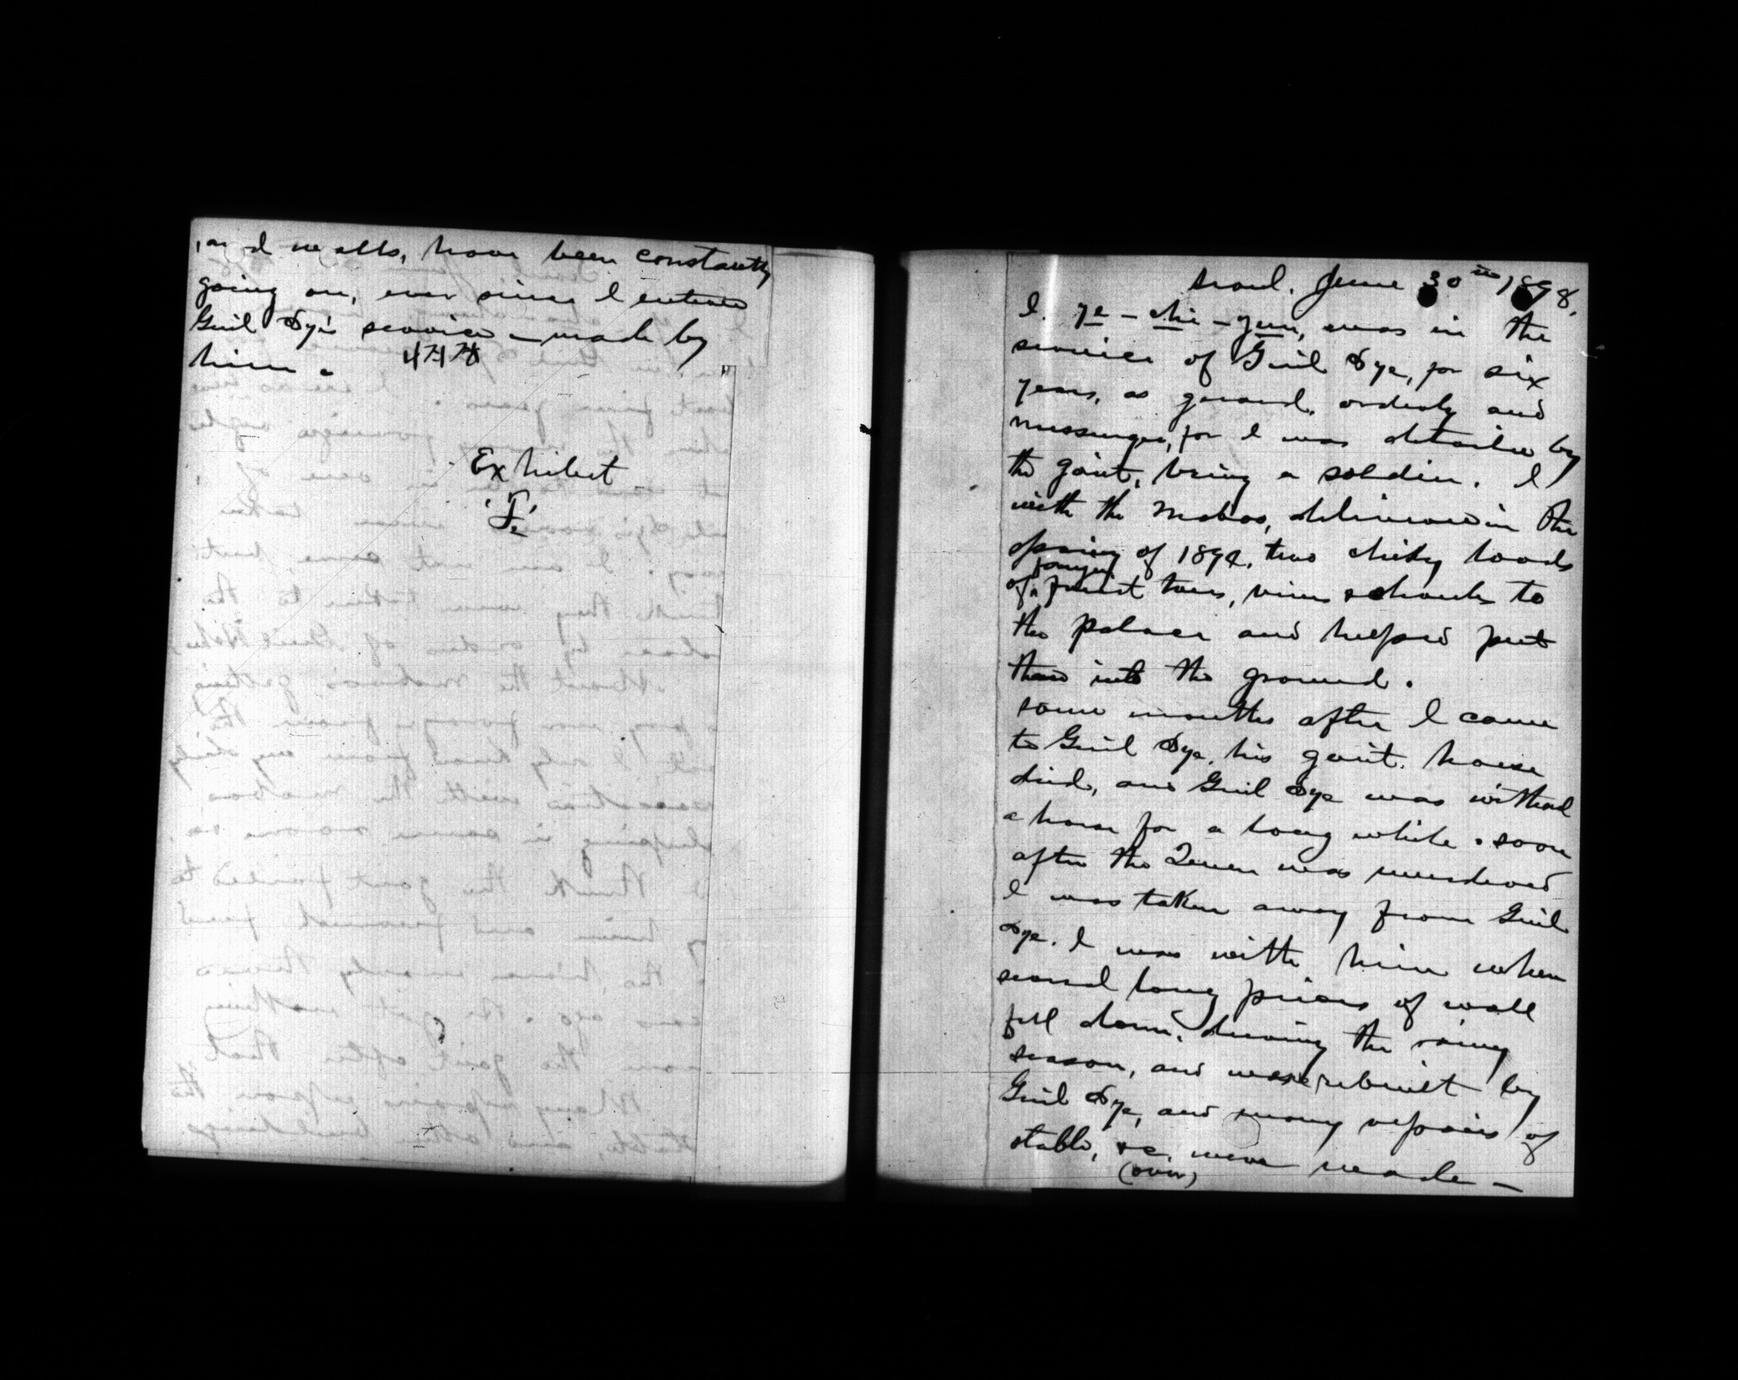 and walls, have been constantly
going on, ever since I entered
Genl Dye's service — made by
him.
Exhibit
'F2'
Seoul. June 30th 1898.
I. Ye-chi-yun, was in the
service of Genl Dye, for six
years, as guard, orderly and
messenger, for I was detailed by
the govt, being a soldier. I
with the mabos, delivered in the
spring of 1894, two chiky loads
of fruit trees, vines & shrubs to
the palace and helped put
them into the ground.
some months after I came
to Genl Dye, his govt. horse
died, and Genl Dye was without
a horse for a long while. soon
after the Queen was murdered
I was taken away from Genl
Dye. I was with him when
several long pieces of wall
fell down, during the rainy
season, and were rebuilt by
Genl Dye, and many repairs of
stable, &c. were made —
(over)